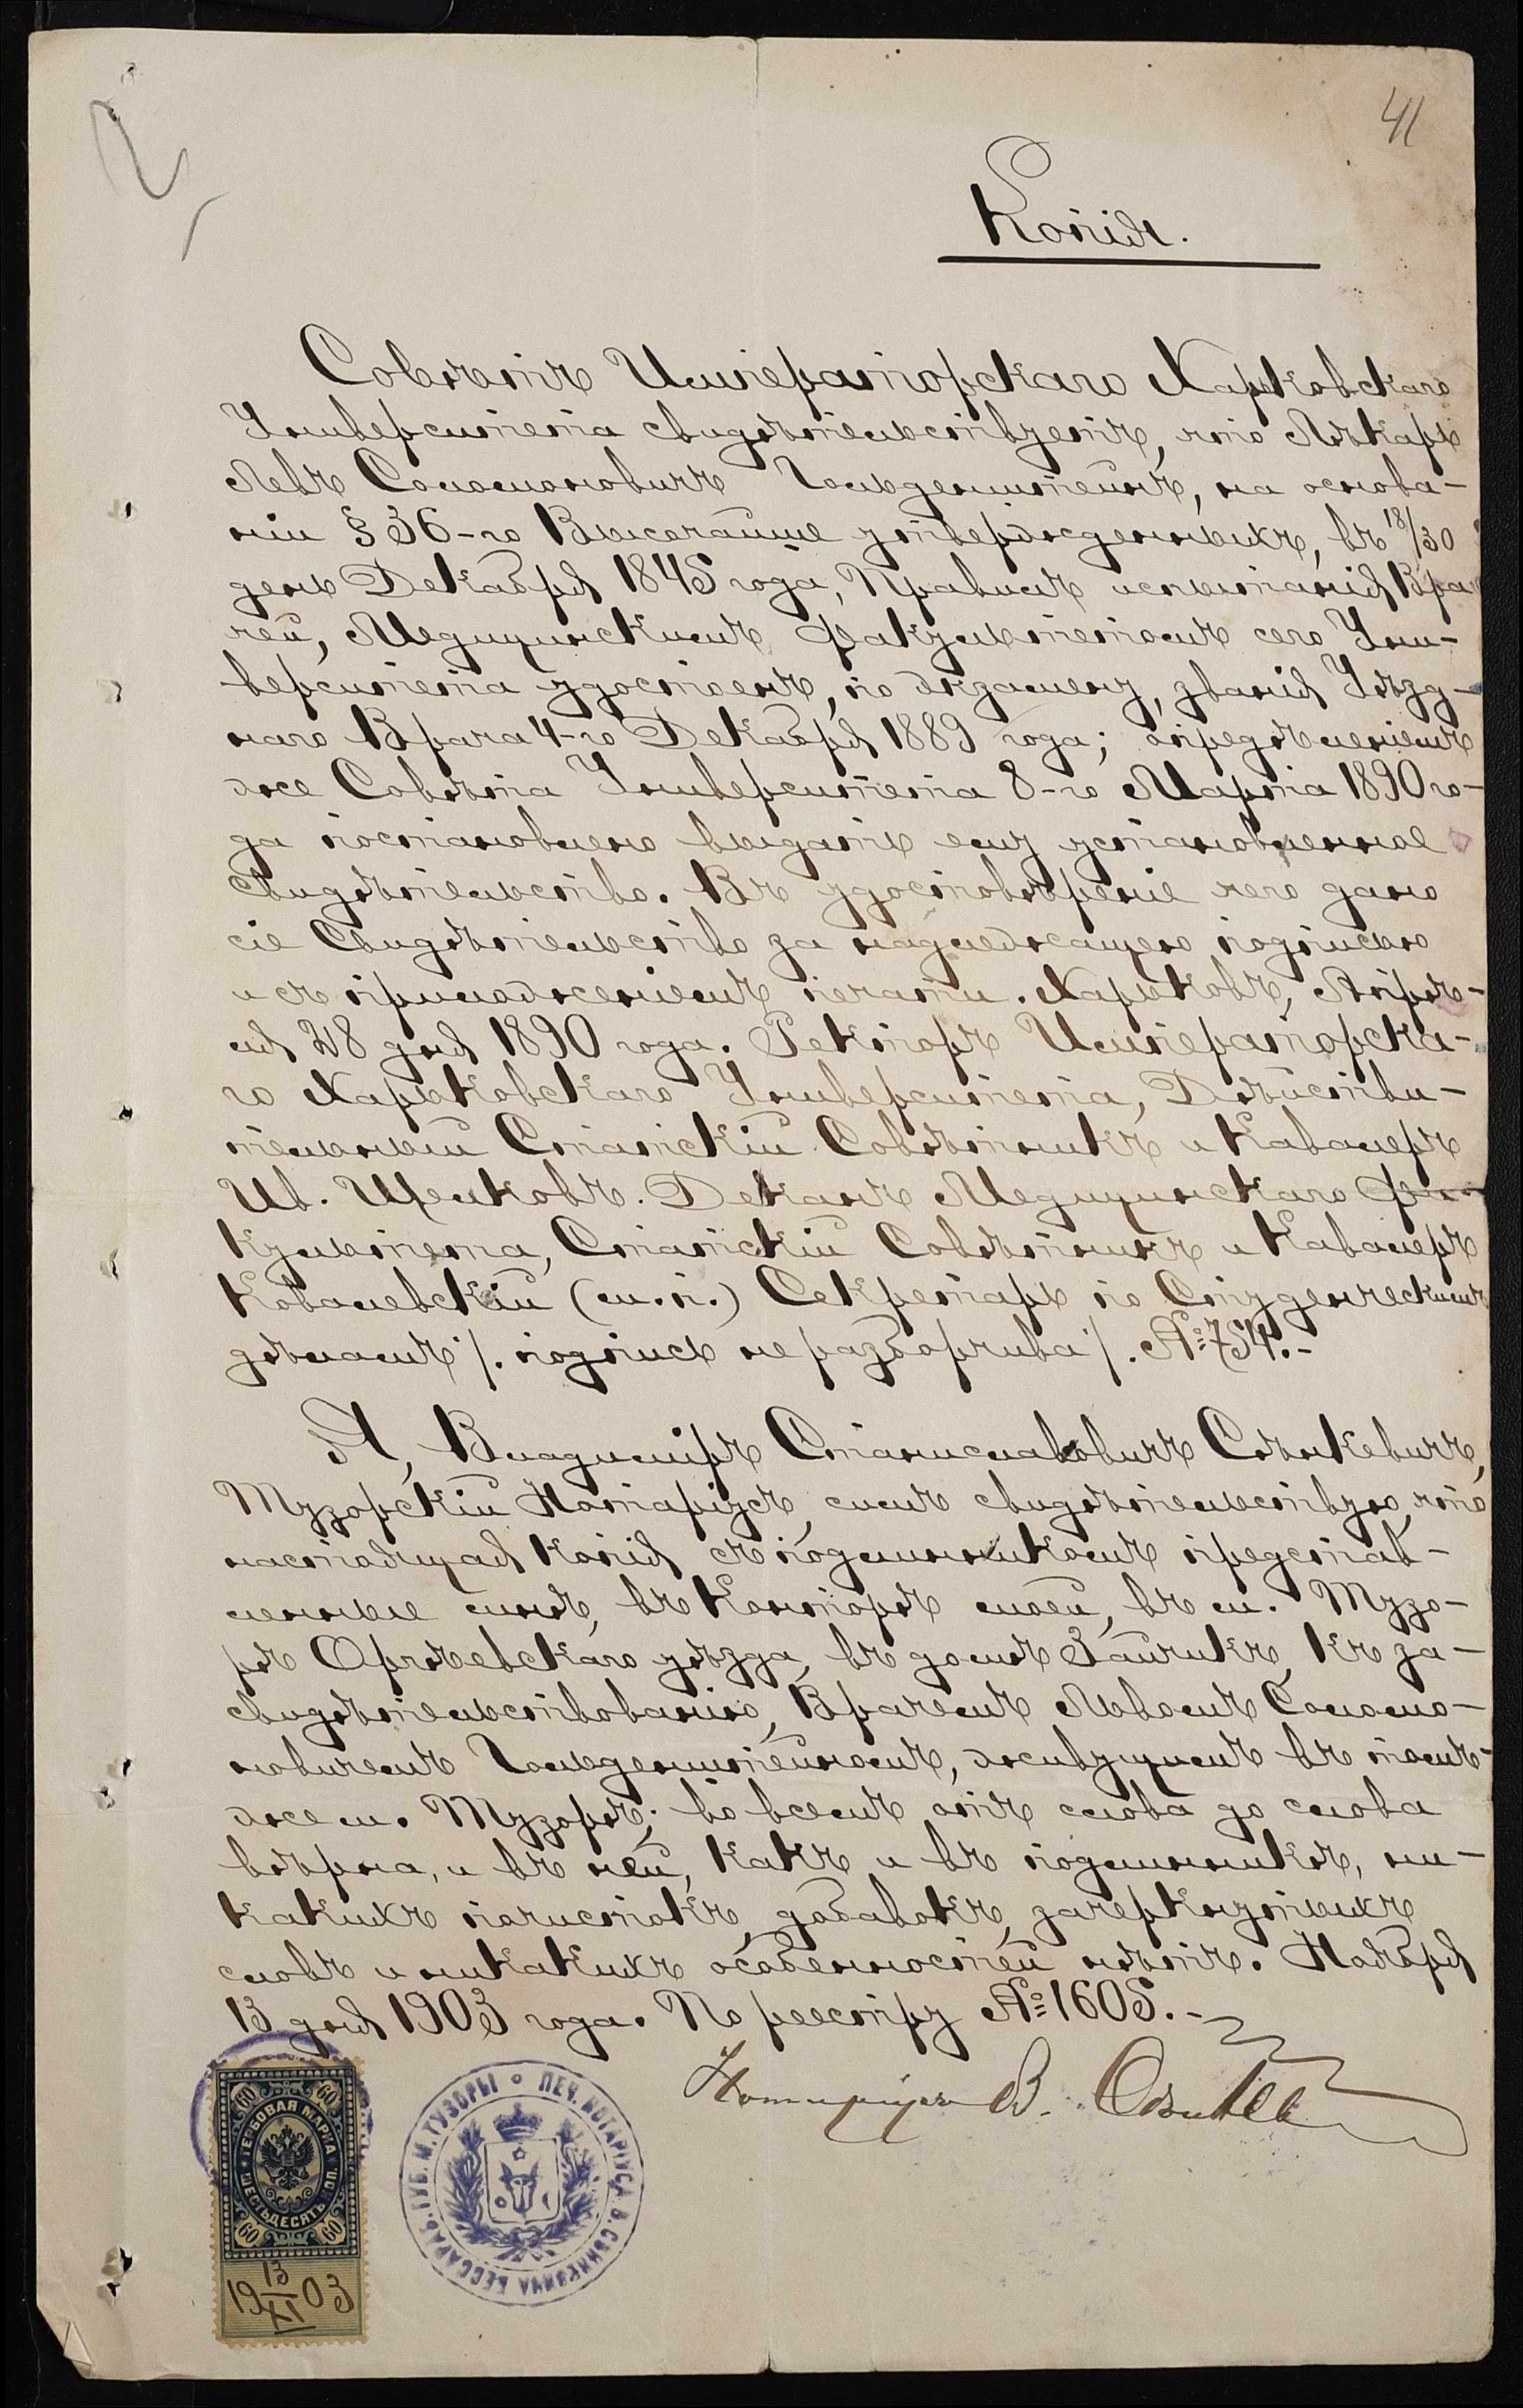 41
Копія.
Совѣтъ Императорскаго Харьковскаго
Университета свидѣтельствуетъ, что Лѣкарь
Левъ Соломоновичъ Гольденштейнъ, на основа-
ніи § 36-го Высочайше утвержденныхъ, въ 18/30
день Декабря 1845 года, Правилъ испытанія Вра-
чей, Медицинскимъ Факультетомъ сего Уни-
верситета удостоенъ, по экзамену, званія Уѣзд-
наго Врача 4-го Декабря 1889 года; опредѣленіемъ
же Совѣта Университета 8-го Марта 1890 го-
да постановлено выдать ему установленное
Свидѣтельство. Въ удостовѣреніе чего дано
сіе Свидѣтельство за надлежащею подписью
и съ приложеніемъ печати. Харьковъ, Апрѣ-
ля 28 дня 1890 года. Ректоръ Императорска-
го Харьковскаго Университета, Дѣйстви-
тельный Статскій Совѣтникъ и Кавалеръ
Ив. Щелковъ. Деканъ Медицинскаго Фа-
культета, Статскій Совѣтникъ и Кавалеръ
Ковалевскій (м.п.) Секретарь по Студенческимъ
дѣламъ /. подпись не разборчива /. № 754.-
Я, Владиміръ Станиславовичъ Сѣнкевичъ,
Тузорскій Нотаріусъ, симъ свидѣтельствую, что
настоящая копія съ подлинникомъ представ-
ленные мнѣ, въ Конторѣ моей, въ м. Тузо-
рѣ Оргѣевскаго уѣзда, въ домѣ Зайчикъ, къ за-
свидѣтельствованію, Врачемъ Львомъ Соломо-
новичемъ Гольденштейномъ, живущимъ въ томъ-
же м. Тузорѣ; во всемъ отъ слова до слова
вѣрна, и въ ней, какъ и въ подлинникѣ, ни-
какихъ почистокъ, добавокъ, зачеркнутыхъ
словъ и никакихъ особенностей нѣтъ. Ноября
13 дня 1903 года. По реестру № 1605.-
Нотаріусъ В. Сѣнкев
60 60
ГЕРБОВАЯ МАРКА
ШЕСТЬДЕСЯТЪ КОП.
60 60
19 13/XI 03
ПЕЧ. НОТАРІУСА В. СѢНКЕВИЧА БЕССАРАБ. ГУБ. М. ТУЗОРЫ